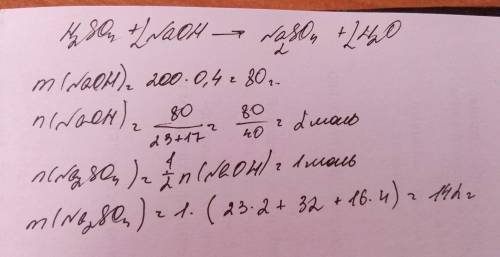 H₂SO₄ + 2NaOH → Na₂SO₄ + 2H₂O
m(NaOH) = 200·0,4 = 80г.
n(NaOH) = 80/(23+17) = 80/40 = 2 моль
n(Na₂SO₄) = 1/2 n(NaOH) = 1 моль
m(Na₂SO₄) = 1·(23·2 + 32 + 16·4) = 142г